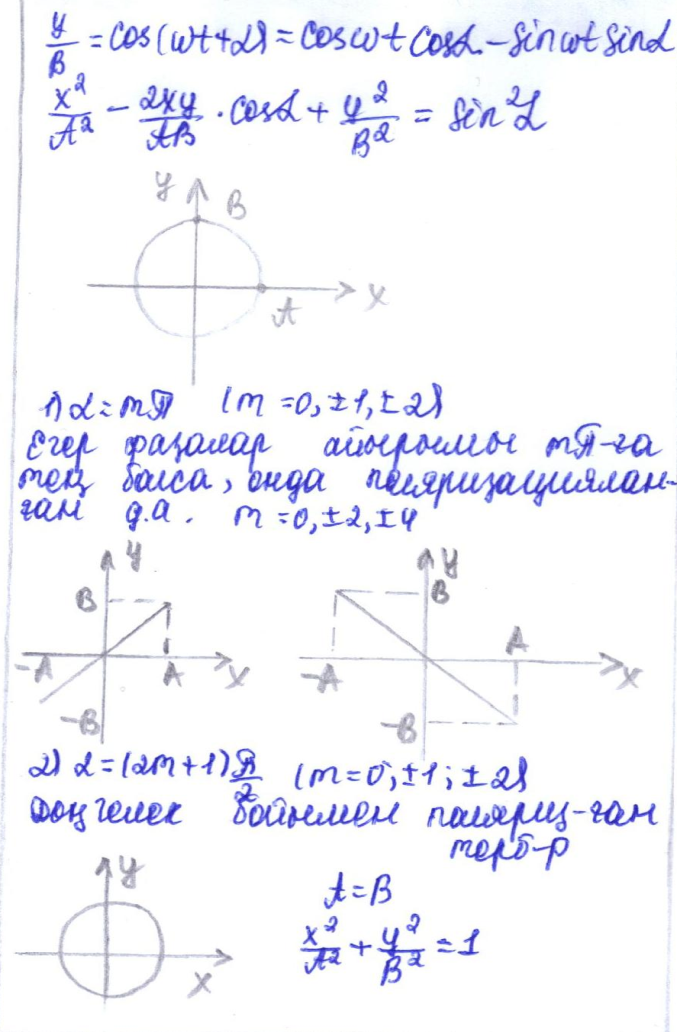 y/B = cos(ωt+α) = cosωt cosα - sinωt sinα
x²/A² - 2xy/AB · cosα + y²/B² = sin²α
y B
x
A
1) α = mπ (m = 0, ±1, ±2)
Егер фазалар айырымы mπ-ға
тең болса, онда поляризациялан-
ған д.а. m = 0, ±2, ±4
y y
B B
-A A x -A A x
-B -B
2) α = (2m+1) π/2 (m = 0, ±1; ±2)
Дөңгелек бойымен поляриз-ған
терб-р
y
A = B
x²/A² + y²/B² = 1
x